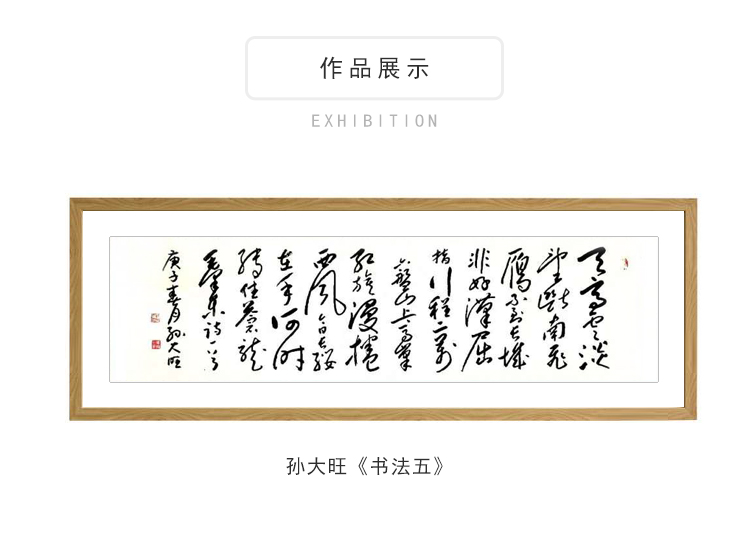 作品展示
EXHIBITION
天高雲淡
望斷南飛
鴈不到长城
非好漢屈
指行程二萬
六盤山上高峯
红旗漫捲
西風今日长缨
在手何时
缚住蒼龍
毛澤东诗一首
庚子春月孙大旺
孙大旺《书法五》